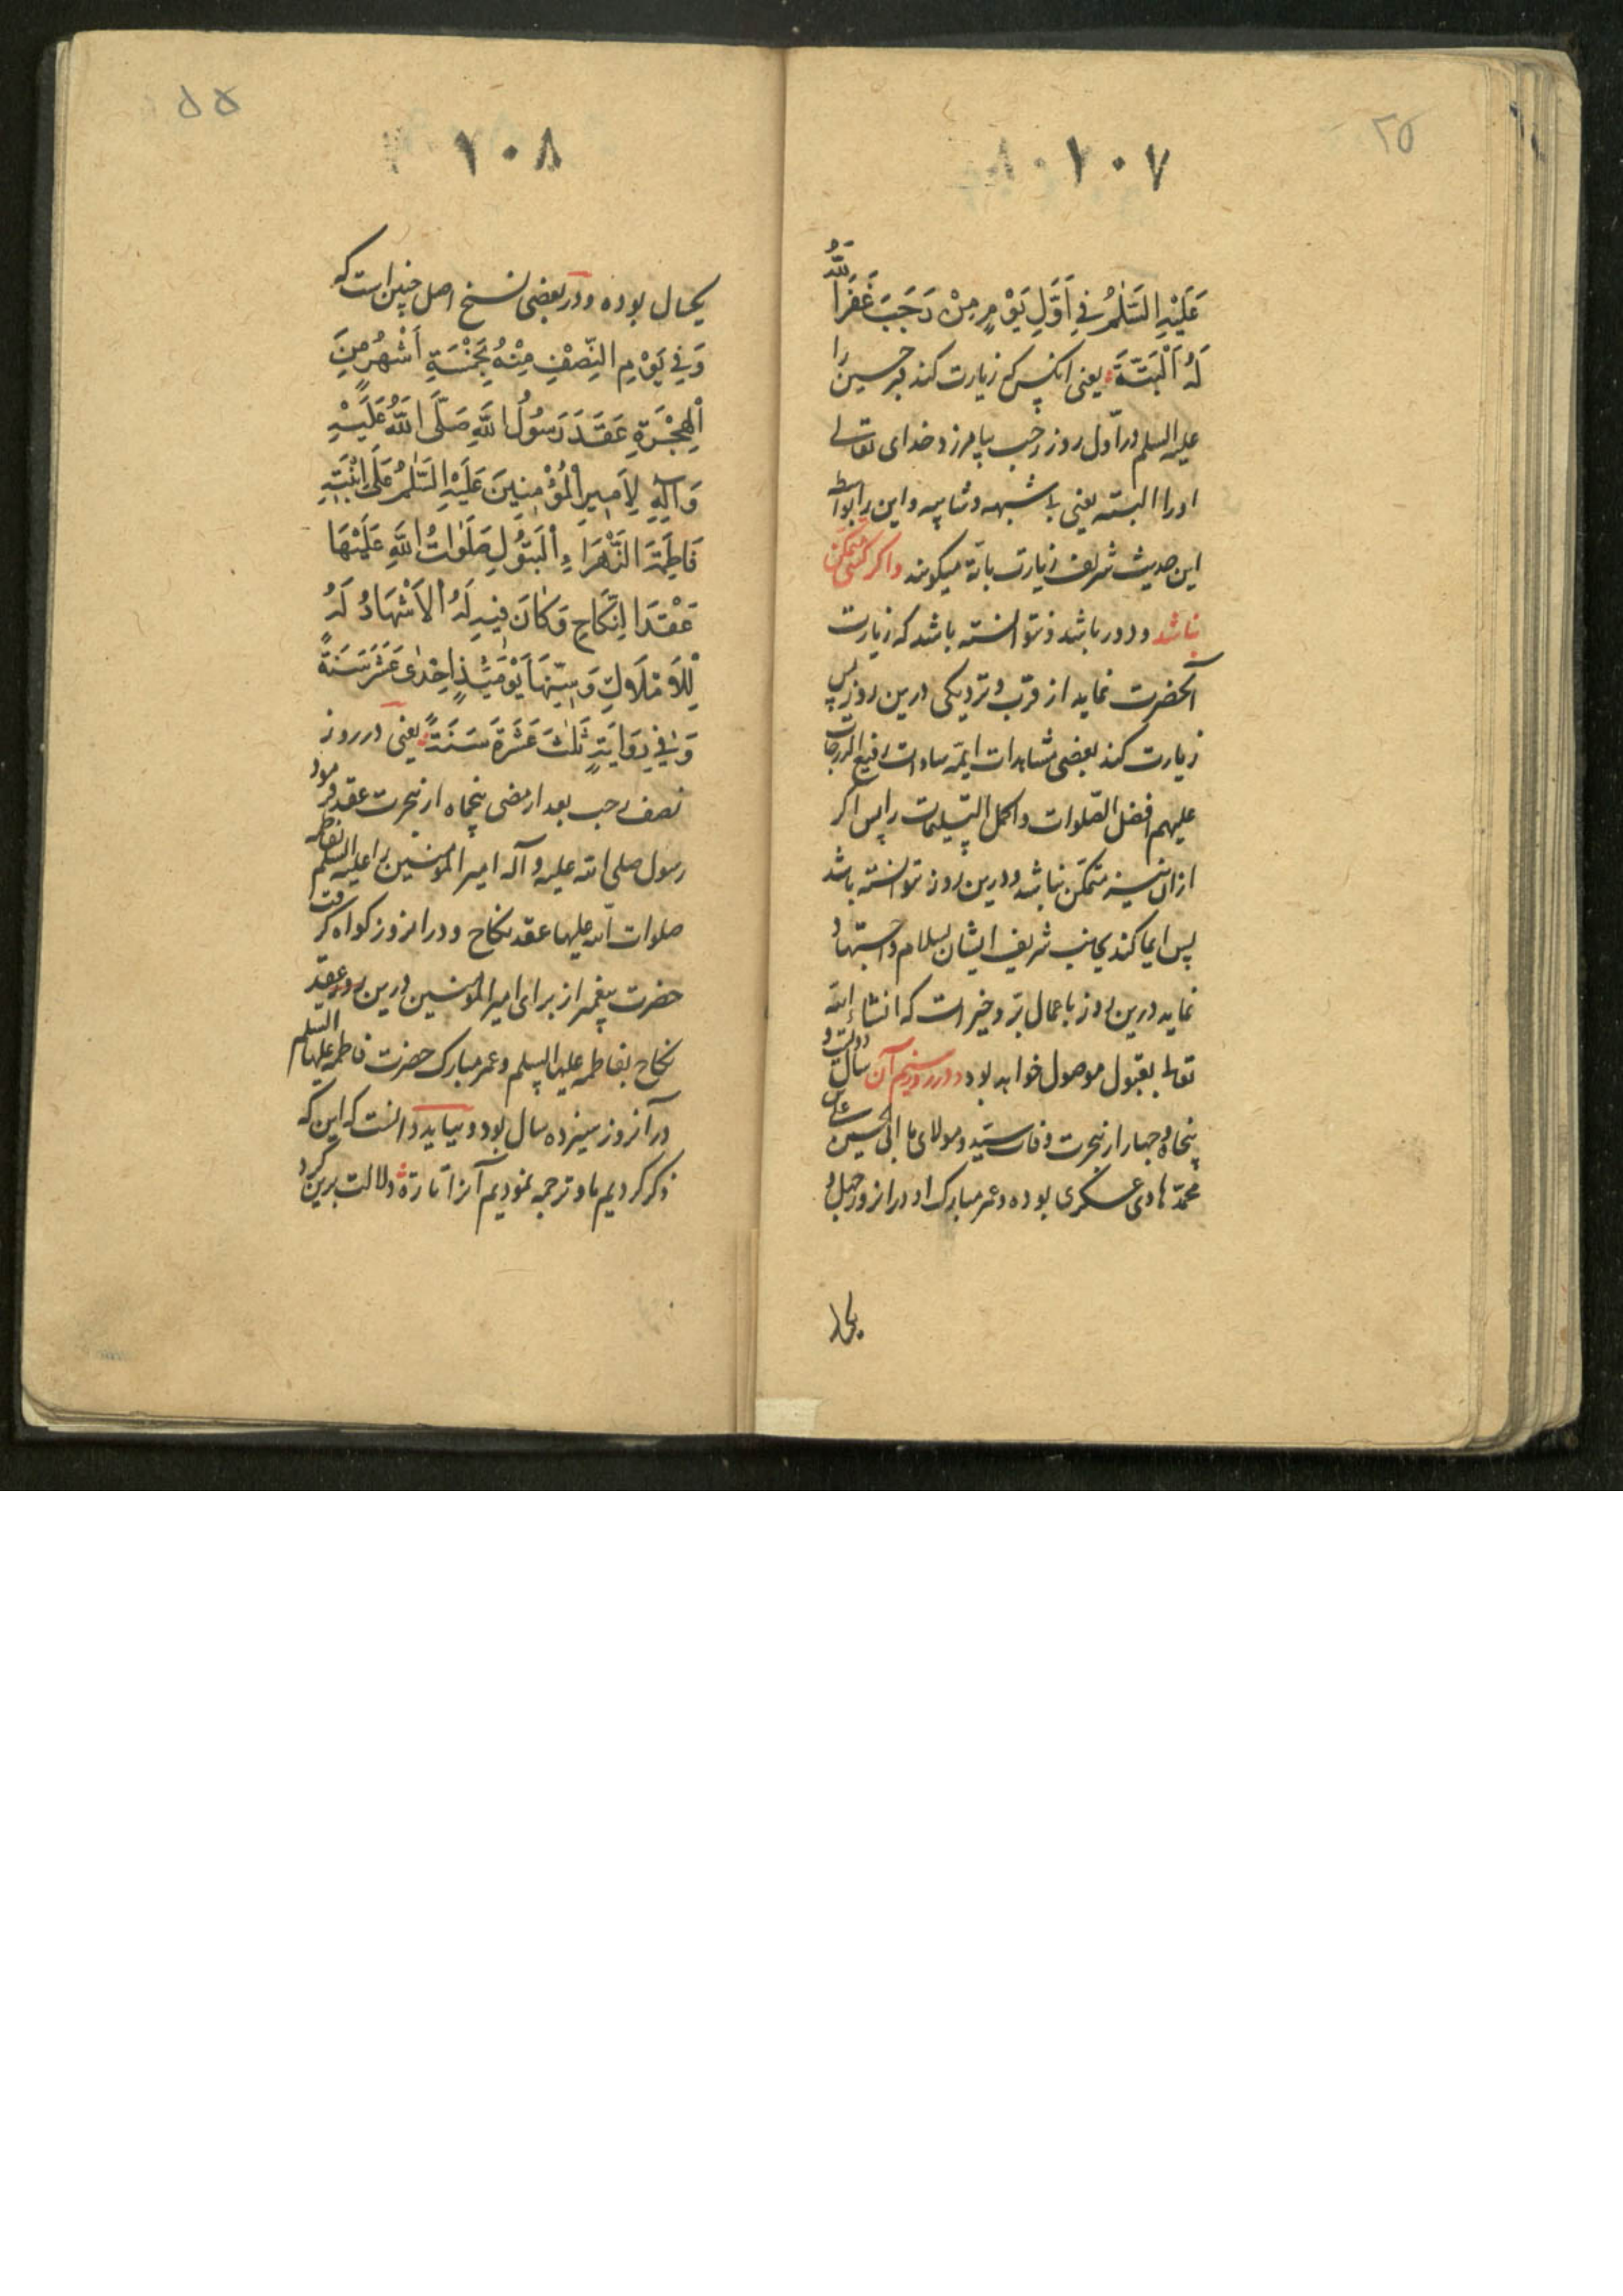 ۲۵
۱۰۷
عَلَيْهِ السَّلٰمُ فِي اَوَّلِ يَوْمٍ مِنْ رَجَبَ غَفَرَ اللّٰهُ
لَهُ اَلْبَتَّةَ يعنی انکس که زیارت کند قبر حسین را
علیه السلم در اول روز رجب بیامرزد خدای تعالی
او را البته یعنی بلا شبهه و شایبه و این را بواسطه
این حدیث شریف زیارت باتّه میکویند واکر کسی متمکن
نباشد و دور باشد و نتوانسته باشد که زیارت
آنحضرت نماید از قرب و نزدیکی درین روز پس
زیارت کند بعضی مشاهدات ایمّه سادات رفیع الدرجات
علیهم افضل الصّلوات و اکمل التسلیمات را پس اکر
ازان نیز متمکّن نباشد و درین روز نتوانسته باشد
پس ایما کند بجانب شریف ایشان بسلام و اجتهاد
نماید درین روز باعمال برّ و خیرات که انشاء الله
تعالی بقبول موصول خواهد بود و در روز سیّم آن سال دویست و
پنجاه و چهار از هجرت وفات سیّد و مولای ما ابی الحسین علی بن
محمّد هادی عسکری بوده و عمر مبارک او در انروز چهل و
یکسال
۵۵
۱۰۸
یکسال بوده و در بعضی نسخ اصل چنین است که
وَفِي يَوْمِ النِّصْفِ مِنْهُ بِخَمْسَةِ اَشْهُرٍ مِنَ
الْهِجْرَةِ عَقَدَ رَسُولُ اللّٰهِ صَلَّى اللّٰهُ عَلَيْهِ
وَآلِهِ لِاَمِيرِ الْمُؤْمِنِينَ عَلَيْهِ السَّلٰمُ عَلَى ابْنَتِهِ
فَاطِمَةَ الزَّهْرَاءِ الْبَتُولِ صَلَوٰاتُ اللّٰهِ عَلَيْهَا
عَقْدَ النِّكَاحِ وَكَانَ فِيهِ لَهُ الْاَشْهَادُ لَهُ
لِلْاَمْلَاكِ وَسِنُّهَا يَوْمَئِذٍ اِحْدٰى عَشَرَ سَنَةً
وَفِي رِوَايَةٍ ثَلٰثَ عَشَرَةَ سَنَةً یعنی در روز
نصف رجب بعد از مضی پنجماه از هجرت عقد فرمود
رسول صلی الله علیه و آله امیر المؤمنین را علیه السلم بفاطمه
صلوات الله علیها عقد نکاح و در انروز کواه کرفت
حضرت پیغمبر از برای امیر المؤمنین درین روز عقد
نکاح بفاطمه علیها السلم و عمر مبارک حضرت فاطمه علیها السلم
در آنروز سیزده سال بود و بباید دانست که این که
ذکر کردیم ما و ترجمه نمودیم آنرا تارةً دلالت برین کرد